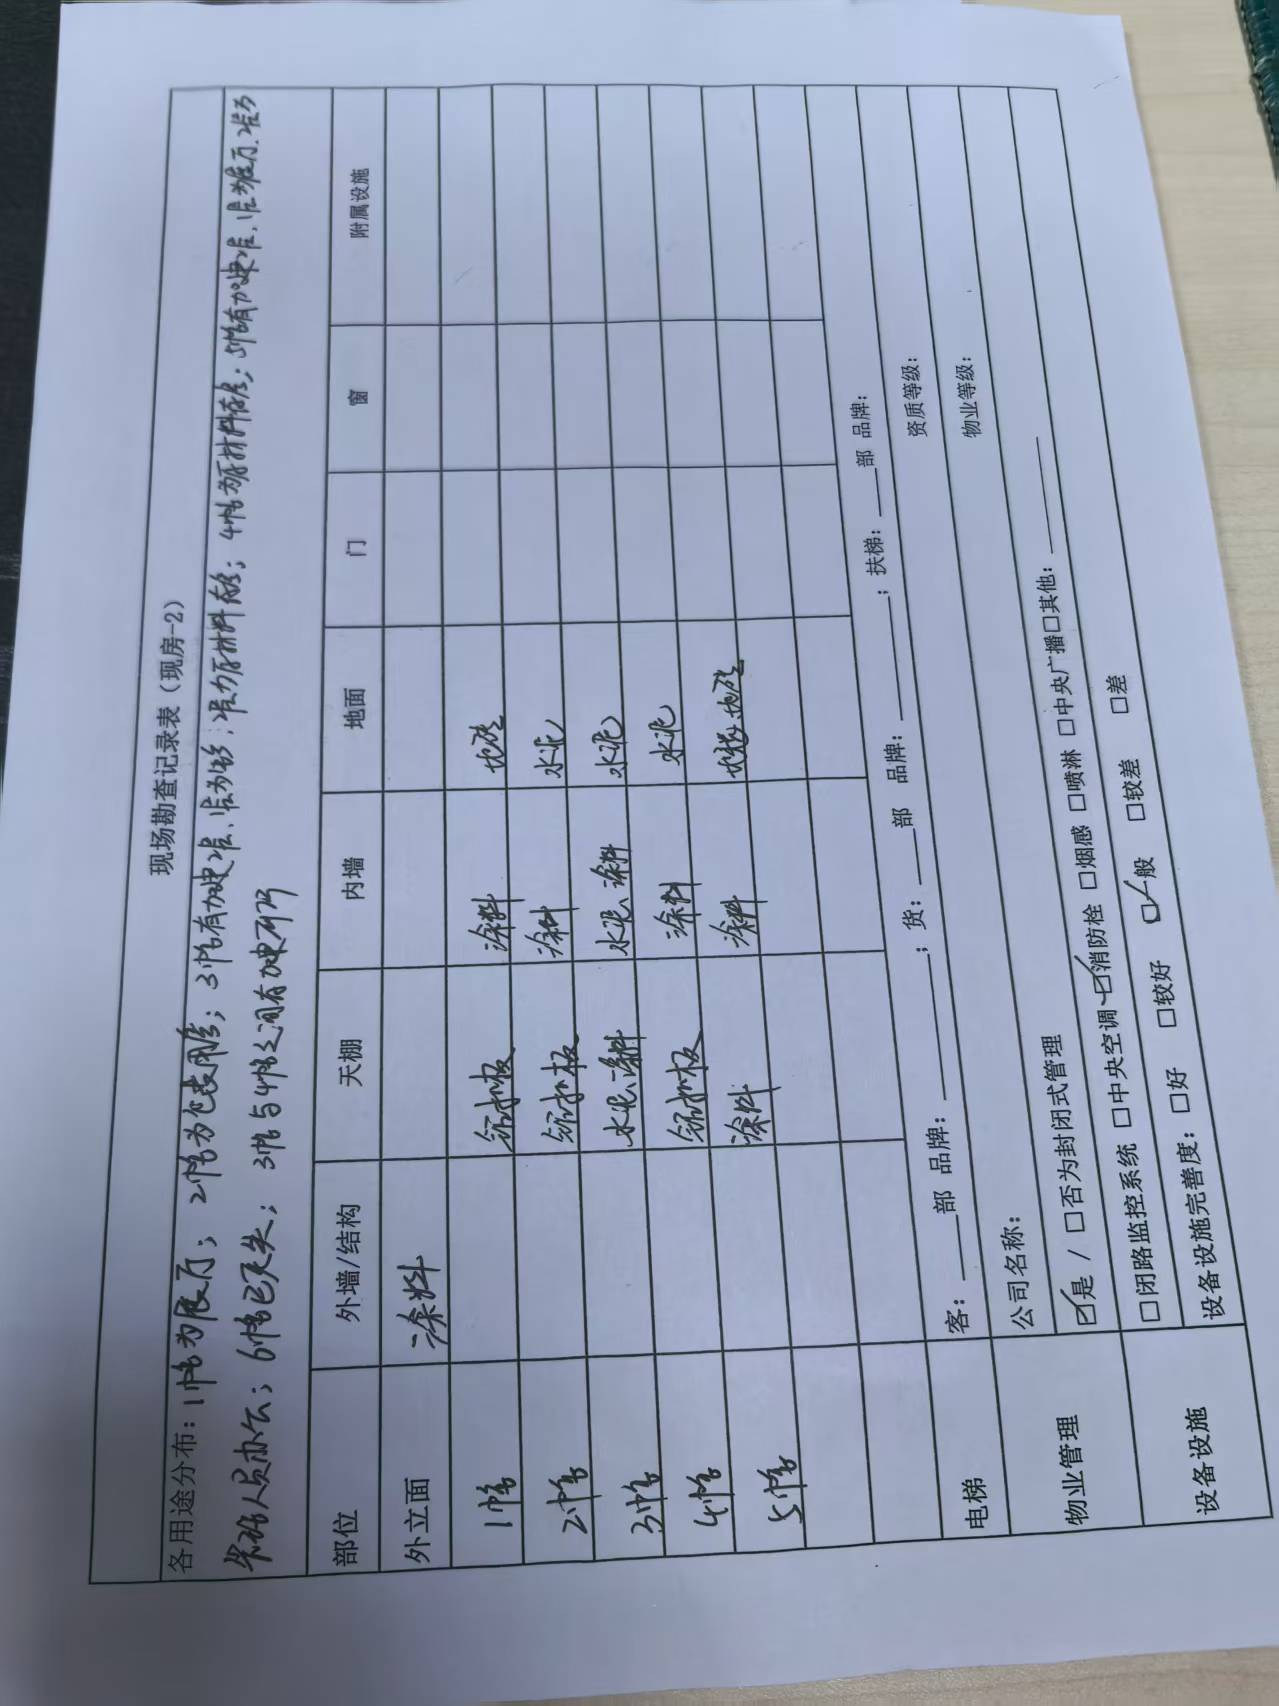 现场勘查记录表（现房-2）
各用途分布：1幢为展厅；2幢为包装用房；3幢有加建2层，1层为，2层为原材料仓库；4幢为原材料仓库；5幢有加建2层，1层为展厅，2层为
人员办公；6幢已灭失；3幢与4幢之间有加建
部位 外墙/结构 天棚 内墙 地面 门 窗 附属设施
外立面 涂料
1幢 铝扣板 涂料 地砖
2幢 铝扣板 涂料 水泥
3幢 水泥、涂料 水泥、涂料 水泥
4幢 铝扣板 涂料 水泥
5幢 涂料 涂料 地砖
电梯 客：____部 品牌：________；货：____部 品牌：________；扶梯：____部 品牌：
物业管理 公司名称： 资质等级：
☑是 / □否为封闭式管理 物业等级：
设备设施 □闭路监控系统 □中央空调 ☑消防栓 □烟感 □喷淋 □中央广播□其他：________
设备设施完善度：□好 □较好 ☑一般 □较差 □差